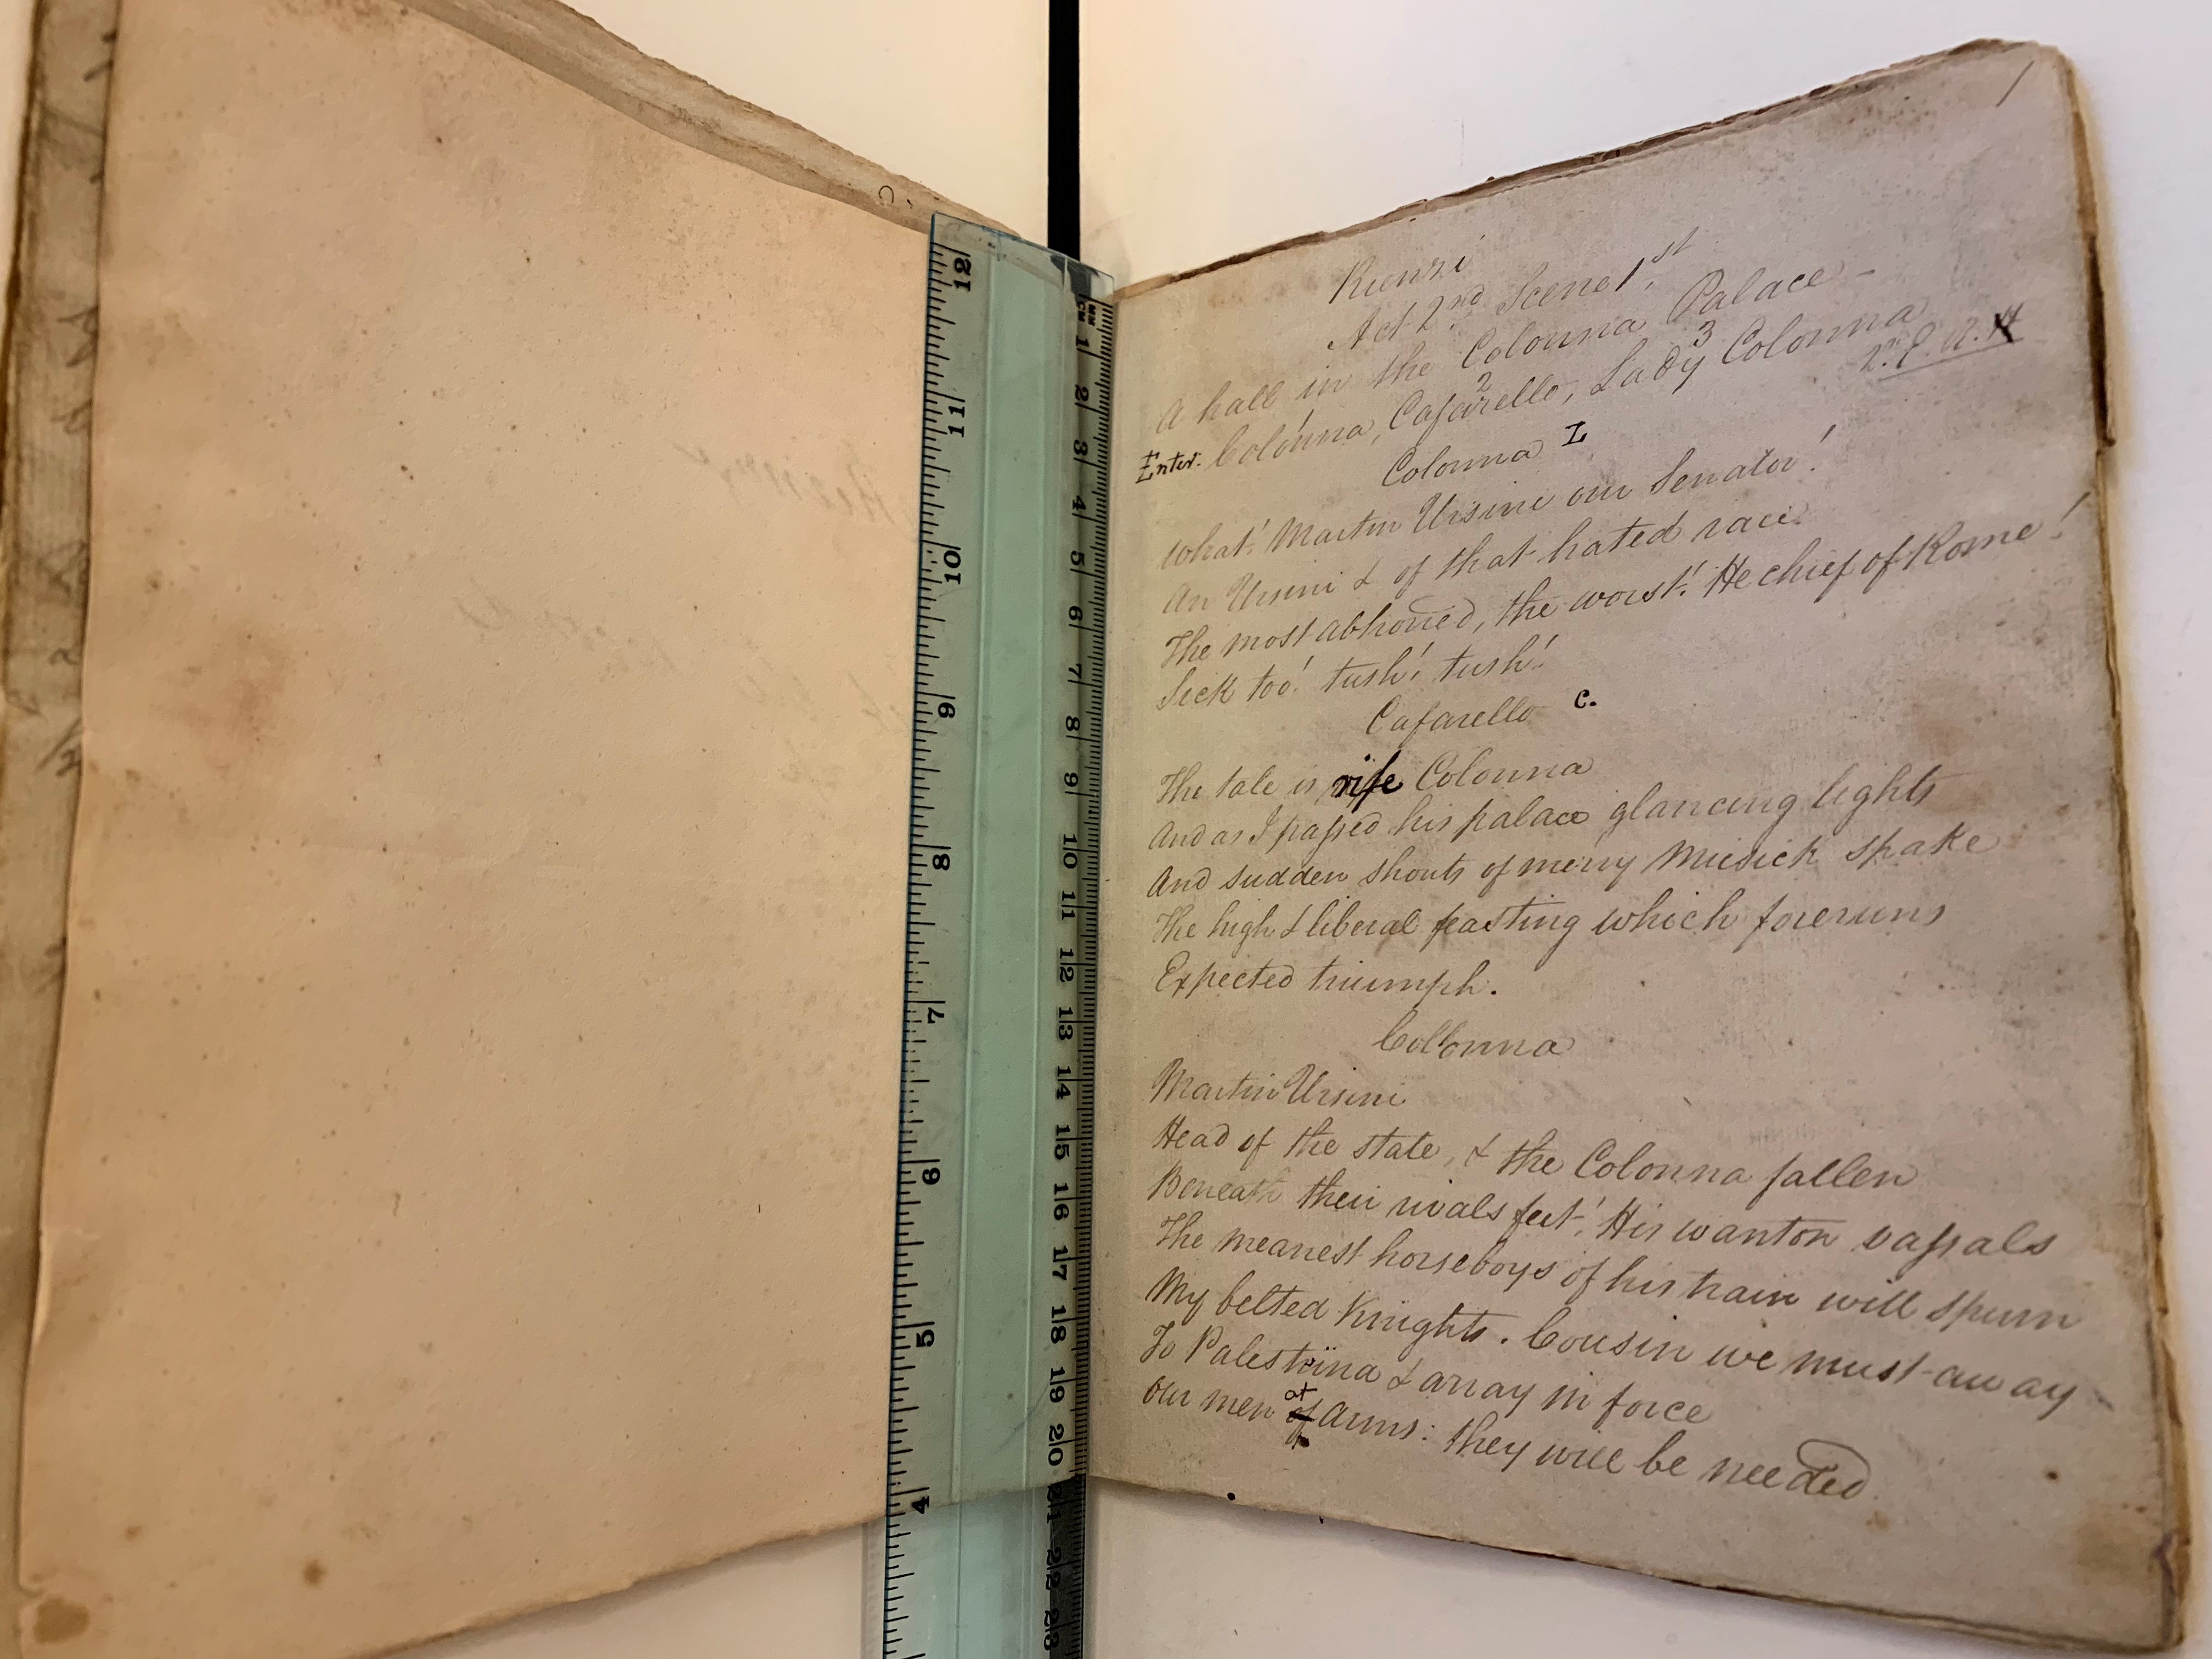 1
Rienzi
Act 2nd Scene 1st
A hall in the Colonna Palace -
Enter. Colonna, Cafarello, Lady Colonna
1 2 3
2.E.
Colonna L
What! Martin Ursini our Senator!
An Ursini & of that hated race.
The most abhorred, the worst! He chief of Rome!
Sick too! tush! tush!
Cafarello C.
The tale is rife Colonna
And as I passed his palace glancing lights
And sudden shouts of merry Musick spake
The high & liberal feasting which foreruns
Expected triumph.
Collonna
Martin Ursini
Head of the state, & the Colonna fallen
Beneath their rivals feet! His wanton vassals
The meanest horseboys of his train will spurn
My belted Knights. Cousin we must away
To Palestrina & array in force
Our men of at Arms: they will be needed.
12
11
10
9
8
7
6
5
4
MM
CM
1
2
3
4
5
6
7
8
9
10
11
12
13
14
15
16
17
18
19
20
21
22
23